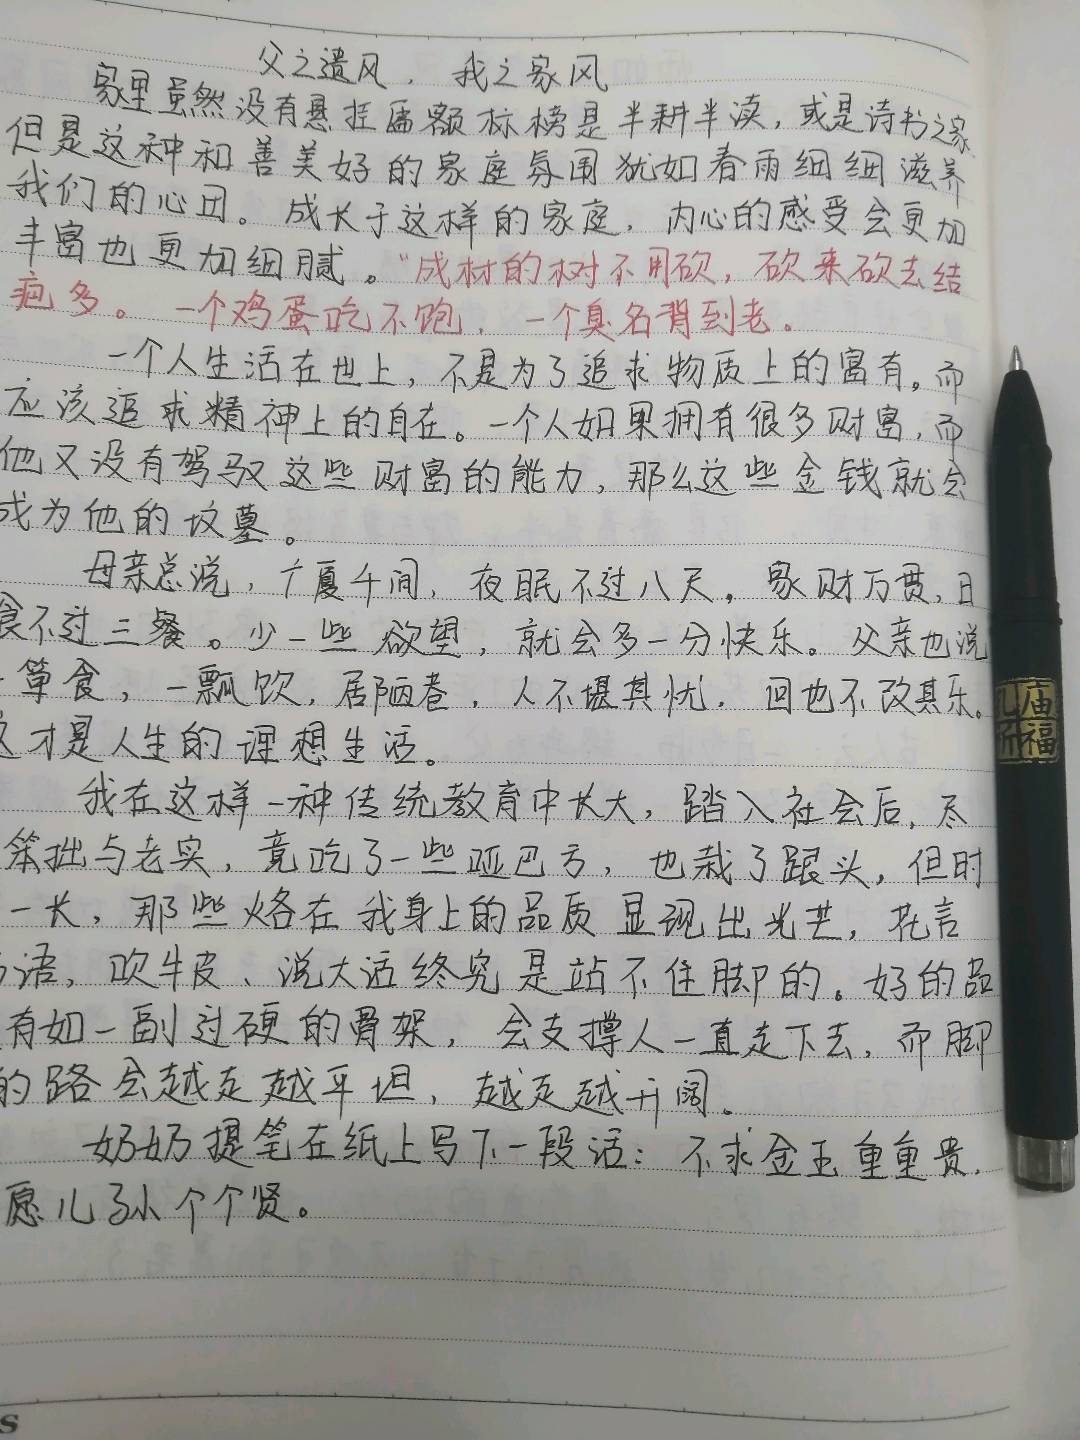 父之遗风，我之家风
家里虽然没有悬挂匾额标榜是半耕半读，或是诗书之家
但是这种和善美好的家庭氛围犹如春雨细细滋养
我们的心田。成长于这样的家庭，内心的感受会更加
丰富也更加细腻。“成材的树不用砍，砍来砍去结
疤多。一个鸡蛋吃不饱，一个臭名背到老。
一个人生活在世上，不是为了追求物质上的富有。而
应该追求精神上的自在。一个人如果拥有很多财富，而
他又没有驾驭这些财富的能力，那么这些金钱就会
成为他的坟墓。
母亲总说，广厦千间，夜眠不过八尺。家财万贯，日
食不过三餐。少一些欲望，就会多一分快乐。父亲也说
一箪食，一瓢饮，居陋巷，人不堪其忧，回也不改其乐。
这才是人生的理想生活。
我在这样一种传统教育中长大，踏入社会后，尽
笨拙与老实，竟吃了一些哑巴亏，也栽了跟头，但时
一长，那些烙在我身上的品质显现出光芒，花言
巧语，吹牛皮、说大话终究是站不住脚的。好的品
有如一副过硬的骨架，会支撑人一直走下去，而脚
的路会越走越平坦，越走越开阔。
奶奶提笔在纸上写下一段话：不求金玉重重贵，
愿儿孙个个贤。
孔庙
祈福
s